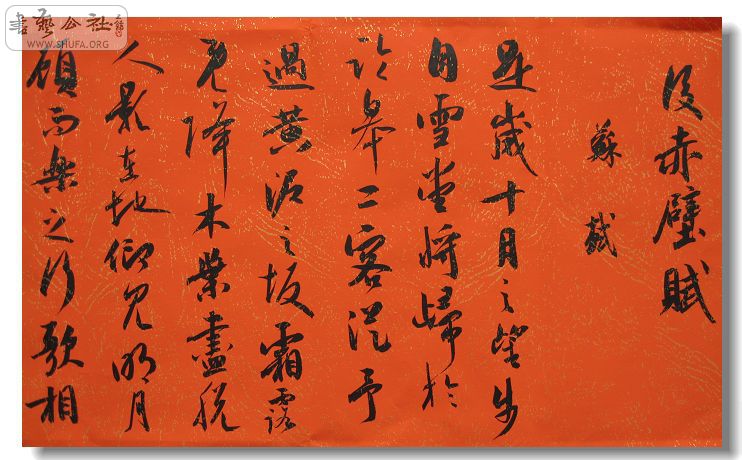 後赤壁賦
蘇軾
是歲十月之望步
自雪堂將歸於
臨皋二客從予
過黃泥之坂霜露
既降木葉盡脫
人影在地仰見明月
顧而樂之行歌相
書藝公社
WWW.SHUFA.ORG